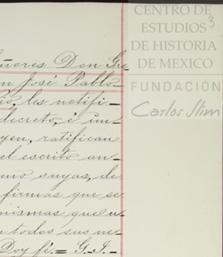 CENTRO DE
ESTUDIOS 3
DE HISTORIA
DE MEXICO
FUNDACIÓN
Carlos Slim
ñores Don Gre
n José Pablo
les notifi-
decreto, é im
yen, ratifican
el escrito an-
mo suyas, de
firmas que se
mismas que us
n todos sus ne
Doy fé.= G. I.=